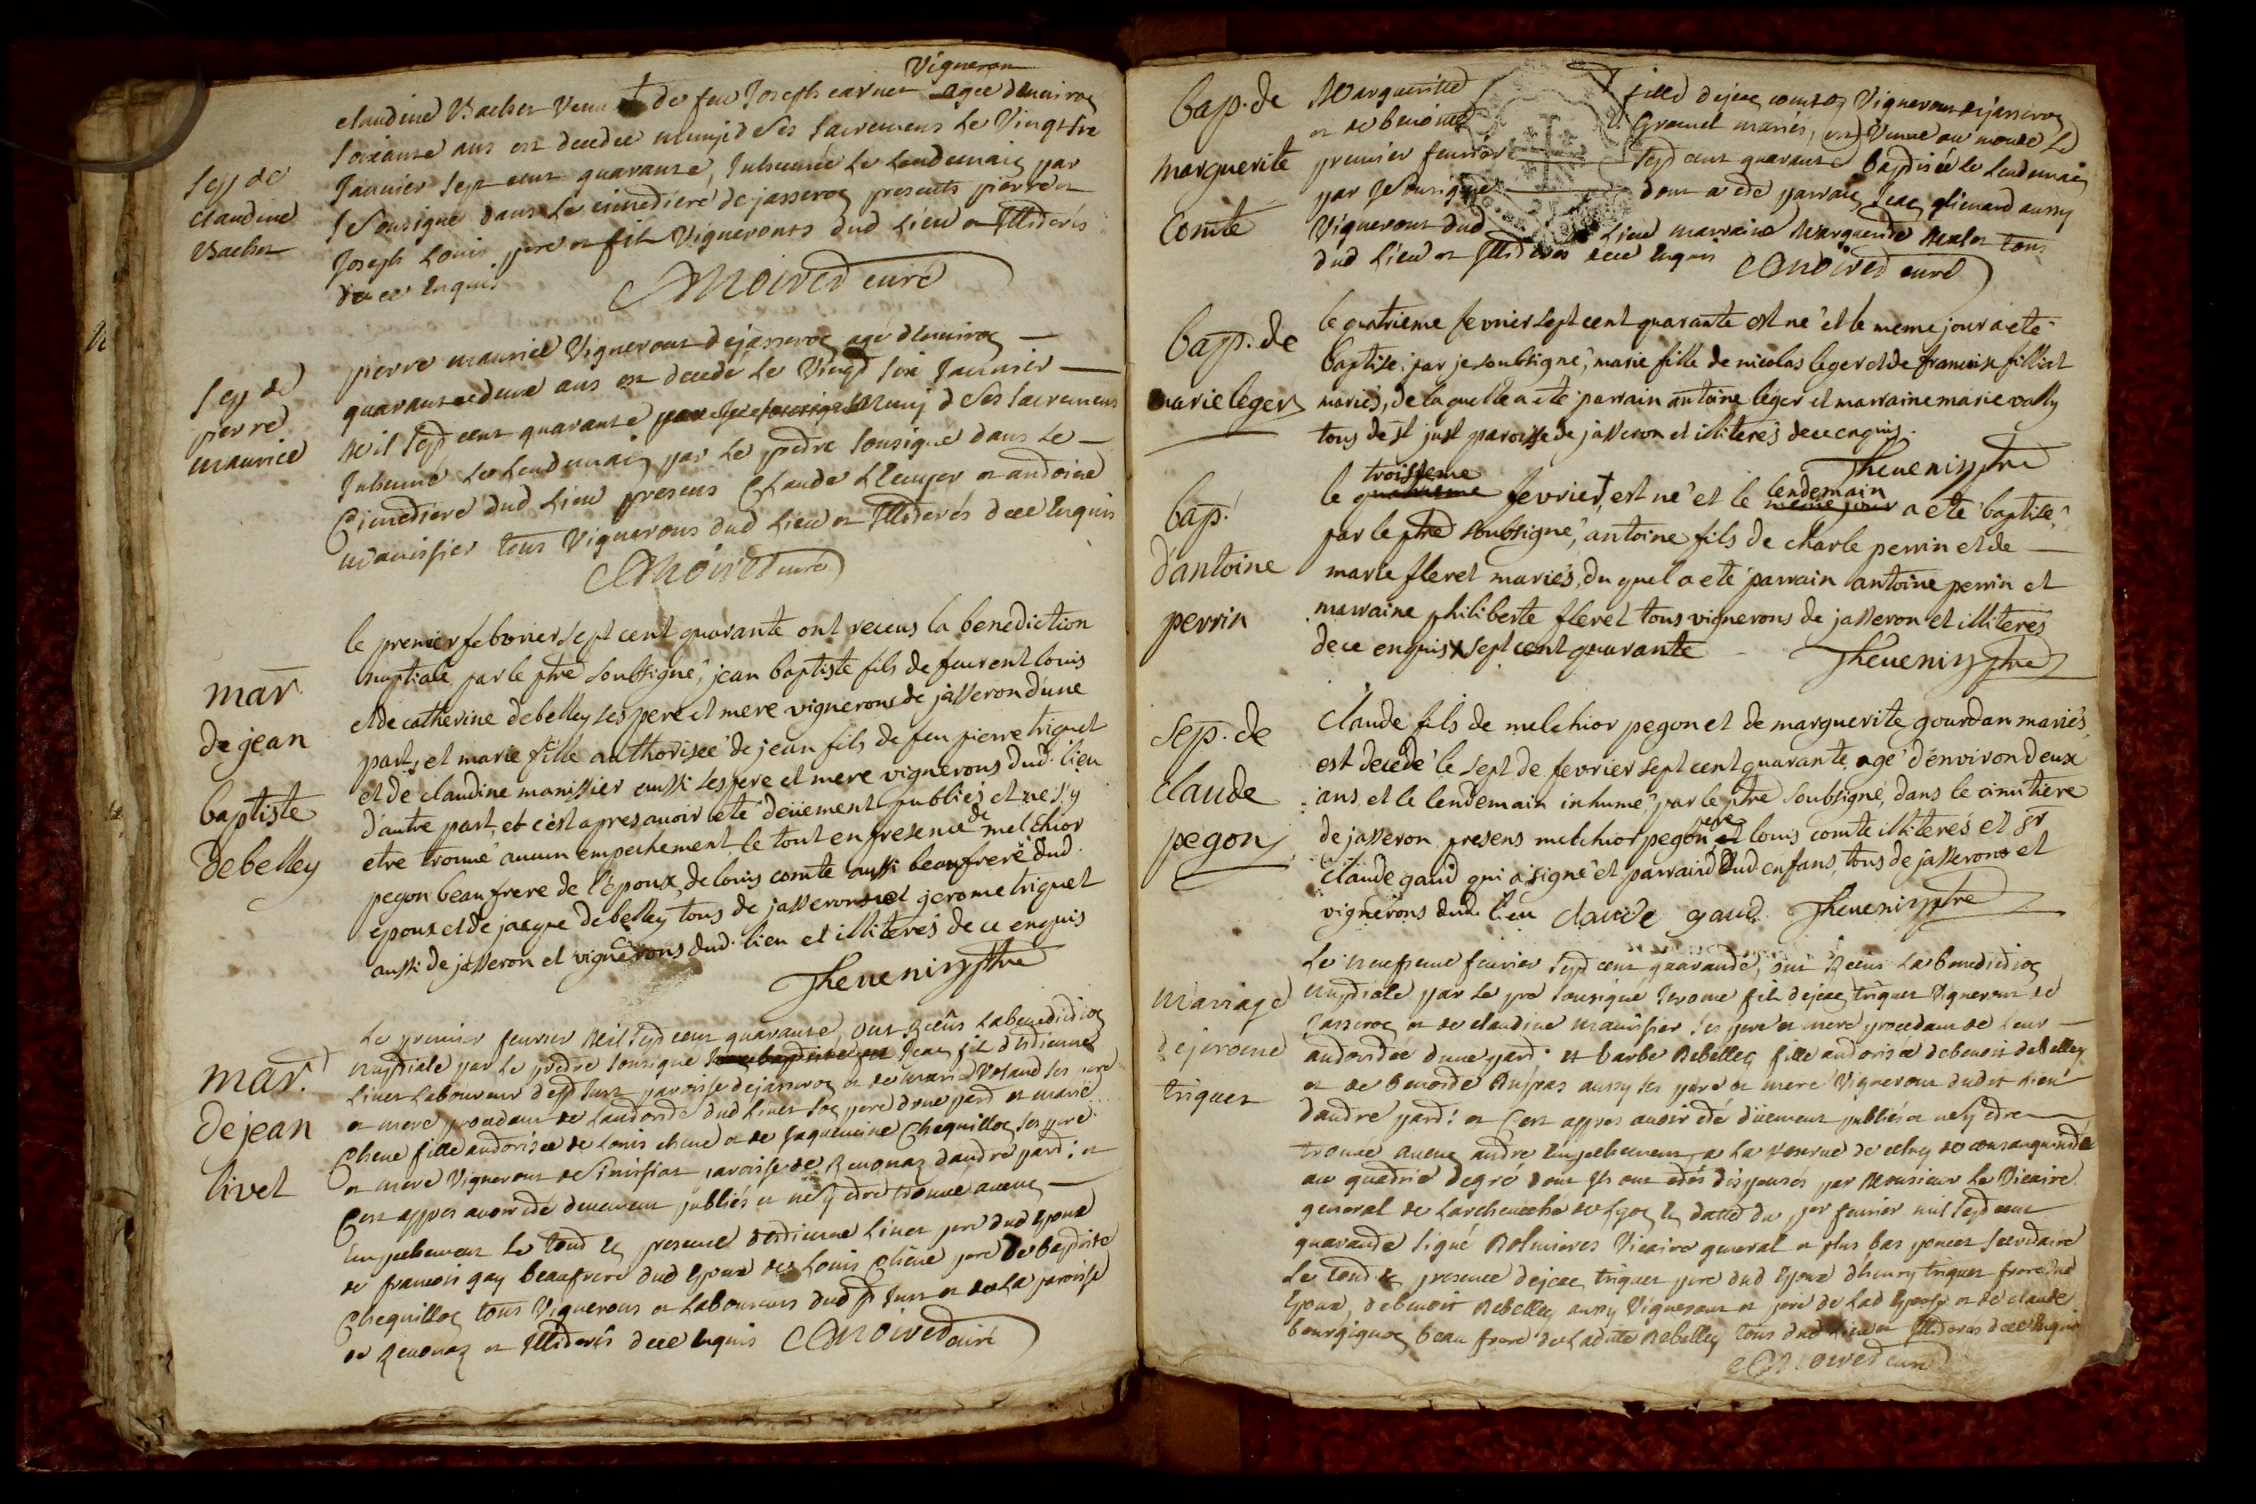 Vigneron
Sep de
Claudine
Bachet
claudine Bachet Veuve de feu Joseph carner agee denviron
soixante ans est decedee munie de Ses Sacremens Le Vingt six
Janvier Sept cent quarante, Inhumée Le Lendemain par
Je Sousigné dans Le cimediere de jasseron presents pierre et
Joseph Louis pere et fils Vignerons dud Lieu et Illiderés
de ce Enquis
Moiret curé
Sep de
pierre
maurice
pierre maurice Vigneron de jasseron agé denviron
quarante deux ans est decedé Le Vingt Six Janvier
Mil Sept cent quarante munj de Ses Sacremens
Inhumé Le Lendemain par Le predre Sousigné dans Le
Cimediere dud Lieu presens Claude et andoine
manissier tous Vignerons dud Lieu et Illiderés de ce Enquis
Moiret curé
mar
de jean
baptiste
debelley
le premier febvrier sept cent quarante ont receus la benediction
nuptiale par le ptre soubsigné, jean baptiste fils de feu rent louis
et de catherine debelley ses pere et mere vignerons de jasseron d'une
part, et marie fille authorisée de jean fils de feu pierre triquet
et de claudine manissier aussi ses pere et mere vignerons dud. lieu
d'autre part, et c'est apres avoir eté deüement publiés et ne s'y
etre trouvé aucun empechement le tout en presence de melchior
pegon beaufrere de l'epoux, de louis comte aussi beaufrere dud.
epoux et de jacque debelley tous de jasseron et gerome triquet
aussi de jasseron et vignerons dud. lieu et illiterés de ce enquis
Thevenin ptre
mar.
de jean
livet
Le premier fevrier Mil Sept cent quarante ont Receûs La benedidion
nupdiale par Le predre Sousigné Jean fil d'Edienne
Livet Laboureur de St Just paroisse de jasseron et de marie Voland ses pere
et mere procedant de Lautorité dud Livet Son pere d'une pard et marie
Chene fille autorisée de Louis chene et de Jaquemine Chequillon Ses pere
et mere Vigneron de Sinissiat paroisse de Revonaz d'autre pard: et
C'est appres avoir eté deuement publiés et ne Sy edre trouvé aucun
Empechement Le toud En presence d'Edienne Livet pere dud Epoux
de francois gay beaufrere dud Epoux de Louis Chene pere De baptiste
Chequillon tous Vignerons et Laboureurs dud St Just et de La paroisse
de Revonaz et Illiderés de ce Enquis Moiret curé
bap. de
marguerite
Comte
Marguerite fille de jean comte Vigneron de jasseron
et de benoite Gromel mariés, est Venue au monde Le
premier fevrier Sept cent quarante baptisée le Lendemain
par Je Sousigné dont a été parrain Jean glienard aussy
Vigneron dud Lieu marraine Marguerite Merlet tous
dud Lieu et Illiderés de ce Enquis Moiret curé
bap. de
marie leger
le quatrieme fevrier sept cent quarante est ne' et le meme jour a eté
baptisé par je soubsigné, marie fille de nicolas leger et de francoise filliet
mariés, de laquelle a eté parrain antoine leger et marraine marie vally
tous de st just paroisse de jasseron et illiterés de ce enquis.
Thevenin ptre
bap.
d'antoine
perrin
troisieme lendemain
le quatrieme fevrier, est ne' et le meme jour a eté baptisé,
par le ptre soubsigné, antoine fils de charle perrin et de
marie fleret mariés, du quel a eté parrain antoine perrin et
marraine philiberte fleret tous vignerons de jasseron et illiterés
de ce enquis sept cent quarante Thevenin ptre
Sep. de
claude
pegon
Claude fils de melchior pegon et de marguerite gourdan mariés,
est decedé le sept de fevrier sept cent quarante agé d'environ deux
ans et le lendemain inhumé par le ptre soubsigné, dans le cimitiere
de jasseron presens melchior pegon pere et louis comte illiterés et Sr
claude gaud qui a signé et parrain dud enfans, tous de jasseron et
vignerons dud. lieu claude gaud Thevenin ptre
Mariage
de jerome
triquet
Le neufieme fevrier Sept cent quarande, ont Receus La benedidion
nupdiale par Le pre Sousigné Jerome fil de jean triquet Vigneron de
Jasseron et de claudine manissier Ses pere et mere procedant de Leur
autoridée d'une pard: et barbe Rebelley fille autorisée de benoit debelley
et de benoide Dupras aussy ses pere et mere Vigneron dudit Lieu
d'autre pard: et C'est appres avoir été düement publiés et ne Sy edre
trouvée aucun autre Empechement, a La reserve de celuy de consanguinité
au quadrie degré dont Ils ont edés dispensés par Monsieur Le Vicaire
general de Larcheveché de Lyon En datted du per fevrier mil Sept cent
quarande Signé Vicaire general et plus bas poncet Secredaire
Le toud En presence de jean triquet pere dud Epoux d'henry triquet frere dud
Epoux, de benoit Rebelley aussy Vigneron et pere de Lad Epouse et de claude
bourgignon beau frere de Ladite Rebelley tous dud Lieu et Illiderés de ce Enquis
Moiret curé